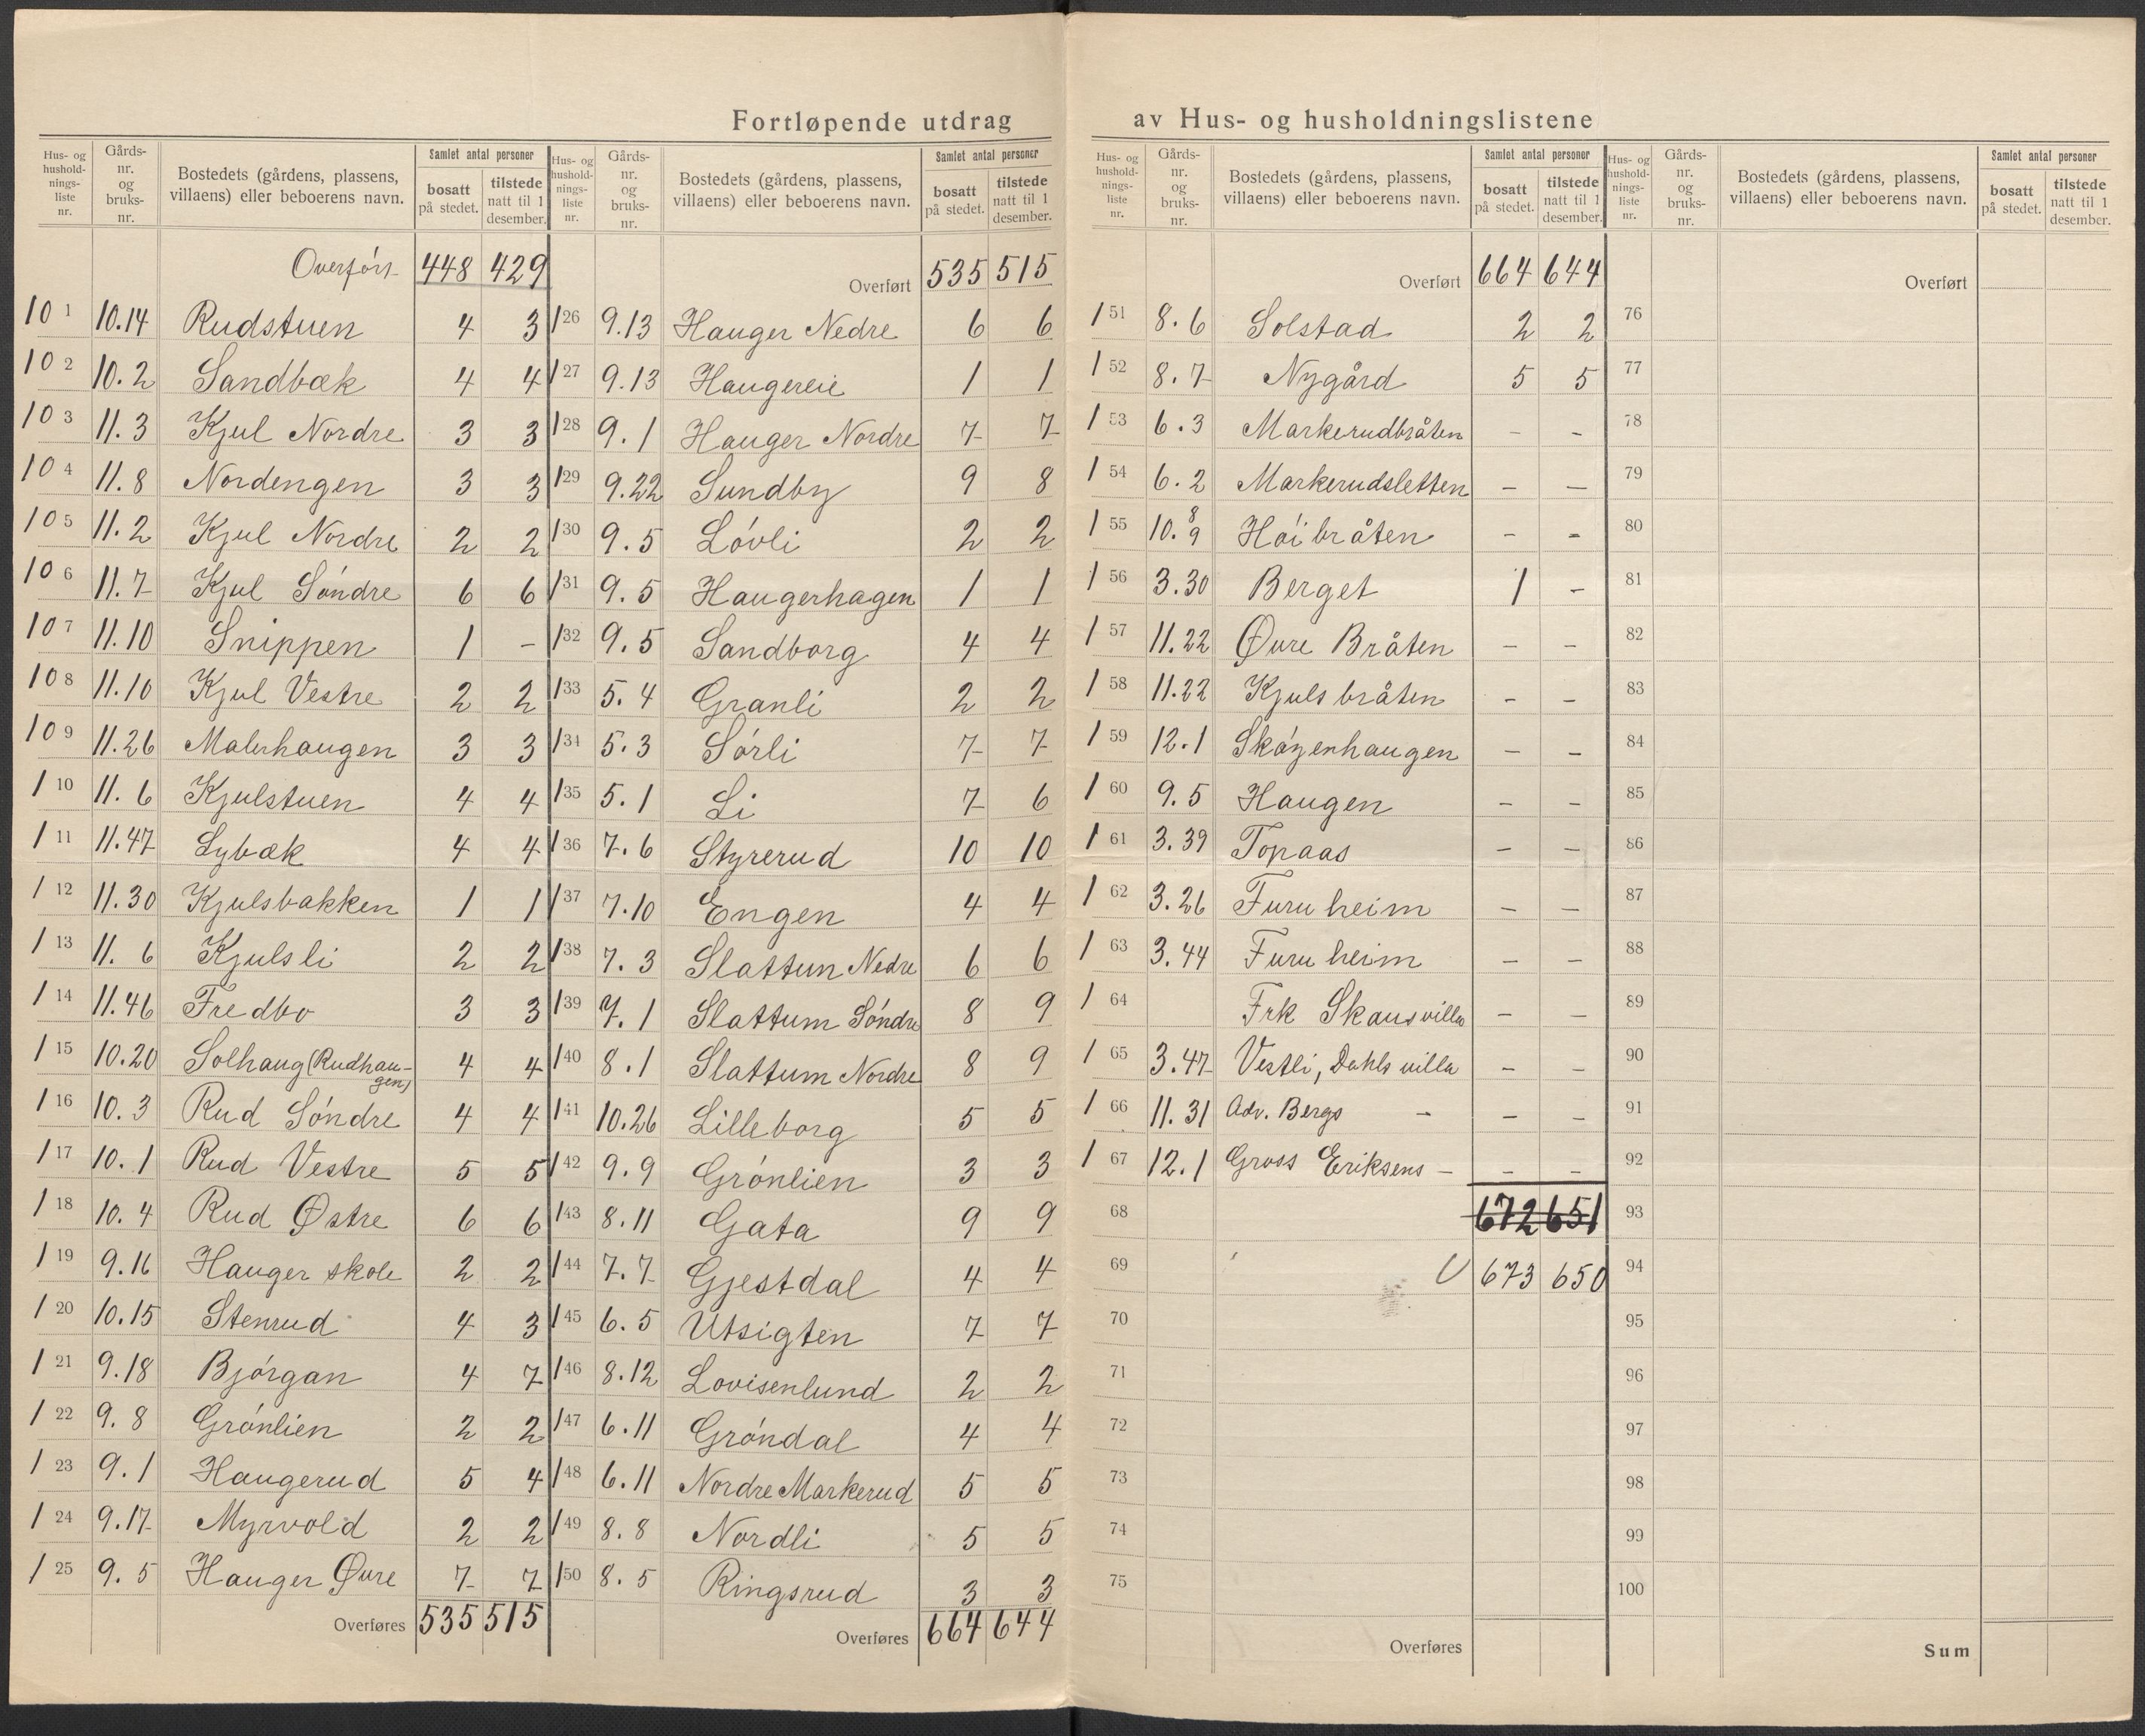 Fortløpende utdrag av Hus- og husholdningslistene
Hus- og hushold- nings- liste nr.
Gårds- nr. og bruks- nr.
Bostedets (gårdens, plassens, villaens) eller beboerens navn.
Samlet antal personer
bosatt på stedet.
tilstede natt til 1 desember.
Overført 448 429
101 10.14 Rudstuen 4 3
102 10.2 Sandbæk 4 4
103 11.3 Kjul Nordre 3 3
104 11.8 Nordengen 3 3
105 11.2 Kjul Nordre 2 2
106 11.7 Kjul Söndre 6 6
107 11.10 Snippen 1 -
108 11.10 Kjul Vestre 2 2
109 11.26 Malerhaugen 3 3
110 11.6 Kjulstuen 4 4
111 11.47 Lybæk 4 4
112 11.30 Kjulsbakken 1 1
113 11.6 Kjulsli 2 2
114 11.46 Fredbo 3 3
115 10.20 Solhaug (Rudhau-
gen) 4 4
116 10.3 Rud Söndre 4 4
117 10.1 Rud Vestre 5 5
118 10.4 Rud Østre 6 6
119 9.16 Hauger skole 2 2
120 10.15 Stenrud 4 3
121 9.18 Bjórgan 4 7
122 9.8 Grónlien 2 2
123 9.1 Haugerud 5 4
124 9.17 Myrvold 2 2
125 9.5 Hauger Øvre 7 7
Overføres 535 515
Hus- og hushold- nings- liste nr.
Gårds- nr. og bruks- nr.
Bostedets (gårdens, plassens, villaens) eller beboerens navn.
Samlet antal personer
bosatt på stedet.
tilstede natt til 1 desember.
Overført 535 515
126 9.13 Hauger Nedre 6 6
127 9.13 Haugereie 1 1
128 9.1 Hauger Nordre 7 7
129 9.22 Sundby 9 8
130 9.5 Lóvli 2 2
131 9.5 Haugerhagen 1 1
132 9.5 Sandborg 4 4
133 5.4 Granli 2 2
134 5.3 Sórli 7 7
135 5.1 Li 7 6
136 7.6 Styrerud 10 10
137 7.10 Engen 4 4
138 7.3 Slattum Nedre 6 6
139 7.1 Slattum Sóndre 8 9
140 8.1 Slattum Nordre 8 9
141 10.26 Lilleborg 5 5
142 9.9 Grónlien 3 3
143 8.11 Gata 9 9
144 7.7 Gjestdal 4 4
145 6.5 Utsigten 7 7
146 8.12 Lovisenlund 2 2
147 6.11 Gróndal 4 4
148 6.11 Nordre Markerud 5 5
149 8.8 Nordli 5 5
150 8.5 Ringsrud 3 3
Overføres 664 644
Hus- og hushold- nings- liste nr.
Gårds- nr. og bruks- nr.
Bostedets (gårdens, plassens, villaens) eller beboerens navn.
Samlet antal personer
bosatt på stedet.
tilstede natt til 1 desember.
Overført 664 644
151 8.6 Solstad 2 2
152 8.7 Nygård 5 5
153 6.3 Markerudbråten - -
154 6.2 Markerudsletten - -
155 10.8 9 Höibråten - -
156 3.30 Berget 1 -
157 11.22 Øvre Bråten - -
158 11.22 Kjulsbråten - -
159 12.1 Skóyenhaugen - -
160 9.5 Haugen - -
161 3.39 Topaas - -
162 3.26 Furuheim - -
163 3.44 Furuheim - -
164 Frk Skausvilla - -
165 3.47 Vestli, Dahls villa - -
166 11.31 Adv. Bergs - - -
167 12.1 Gross Eriksens - - -
68 672 651
69 673 650
70
71
72
73
74
75
Overføres
Hus- og hushold- nings- liste nr.
Gårds- nr. og bruks- nr.
Bostedets (gårdens, plassens, villaens) eller beboerens navn.
Samlet antal personer
bosatt på stedet.
tilstede natt til 1 desember.
Overført
76
77
78
79
80
81
82
83
84
85
86
87
88
89
90
91
92
93
94
95
96
97
98
99
100
Sum